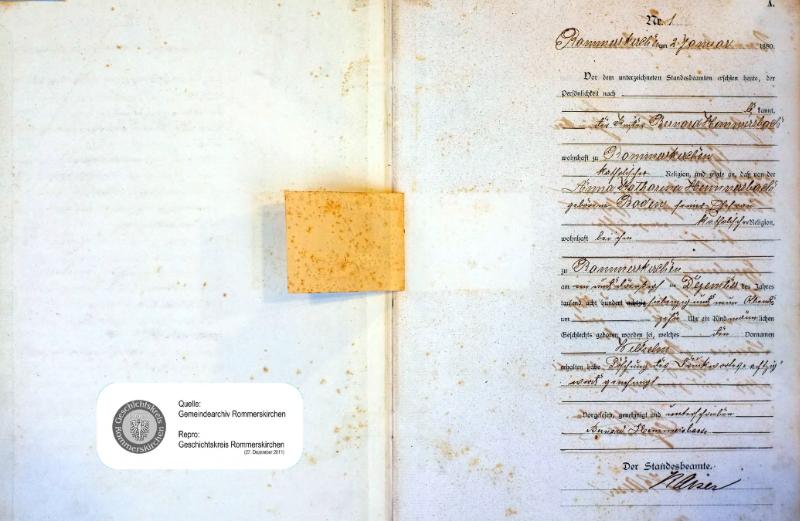 A.
Nr. 1
Rommerskirchen am 2 Januar 1880.
Vor dem unterzeichneten Standesbeamten erschien heute, der
Persönlichkeit nach
kannt,
der Bernard Hemmersbach
wohnhaft zu Rommerskirchen
katholischer Religion, und zeigte an, daß von der
Anna Katharina Hemmersbach
geborene Baden seiner Ehefrau
katholischer Religion,
wohnhaft bei ihm
zu Rommerskirchen
am ein und dreißigsten Dezember des Jahres
tausend acht hundert achtzig siebenzig und neun Abends
um zehn Uhr ein Kind männlichen
Geschlechts geboren worden sei, welches den Vornamen
Wilhelm
erhalten habe. Löschung des Druckwortes achtzig
wird genehmigt.
Vorgelesen, genehmigt und unterschrieben
Bernard Hemmersbach
Der Standesbeamte.
Geschichtskreis Rommerskirchen
Quelle:
Gemeindearchiv Rommerskirchen
Repro:
Geschichtskreis Rommerskirchen
(27. Dezember 2011)